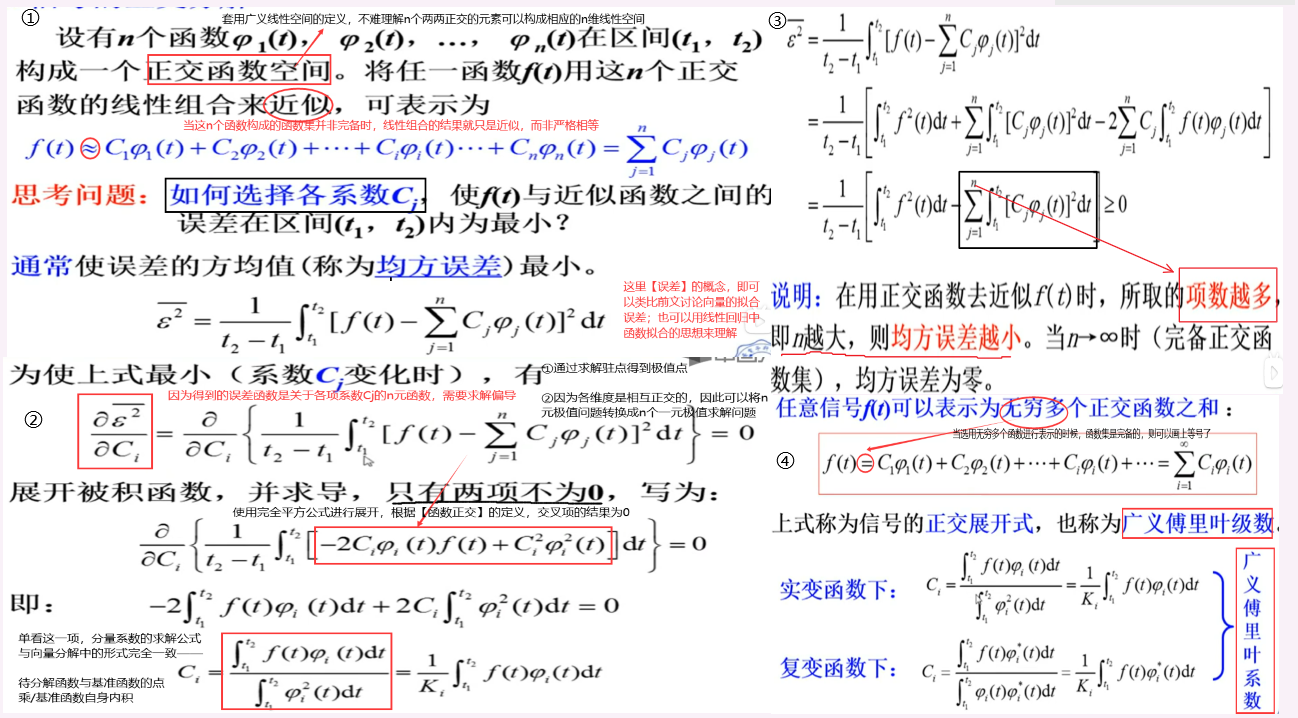 ①
套用广义线性空间的定义，不难理解n个两两正交的元素可以构成相应的n维线性空间
设有n个函数φ₁(t)， φ₂(t)， …， φₙ(t)在区间(t₁，t₂)
构成一个正交函数空间。将任一函数f(t)用这n个正交
函数的线性组合来近似，可表示为
当这n个函数构成的函数集并非完备时，线性组合的结果就只是近似，而非严格相等
f(t)≈C₁φ₁(t)+C₂φ₂(t)+⋯+Cᵢφᵢ(t)⋯+Cₙφₙ(t)=∑_{j=1}^{n}Cⱼφⱼ(t)
思考问题：如何选择各系数Cⱼ，使f(t)与近似函数之间的
误差在区间(t₁，t₂)内为最小？
通常使误差的方均值(称为均方误差)最小。
这里【误差】的概念，即可
以类比前文讨论向量的拟合
误差；也可以用线性回归中
函数拟合的思想来理解
\overline{ε²}=\frac{1}{t₂-t₁}∫_{t₁}^{t₂}[f(t)-∑_{j=1}^{n}Cⱼφⱼ(t)]²dt
为使上式最小（系数Cⱼ变化时），有
①通过求解驻点得到极值点
因为得到的误差函数是关于各项系数Cj的n元函数，需要求解偏导
②因为各维度是相互正交的，因此可以将n
元极值问题转换成n个一元极值求解问题
②
\frac{∂\overline{ε²}}{∂Cᵢ}=\frac{∂}{∂Cᵢ}{\frac{1}{t₂-t₁}∫_{t₁}^{t₂}[f(t)-∑_{j=1}^{n}Cⱼφⱼ(t)]²dt}=0
展开被积函数，并求导，只有两项不为0，写为：
使用完全平方公式进行展开，根据【函数正交】的定义，交叉项的结果为0
\frac{∂}{∂Cᵢ}{\frac{1}{t₂-t₁}∫_{t₁}^{t₂}[-2Cᵢφᵢ(t)f(t)+Cᵢ²φᵢ²(t)]dt}=0
即： -2∫_{t₁}^{t₂}f(t)φᵢ(t)dt+2Cᵢ∫_{t₁}^{t₂}φᵢ²(t)dt=0
单看这一项，分量系数的求解公式
与向量分解中的形式完全一致——
待分解函数与基准函数的点
乘/基准函数自身内积
Cᵢ=\frac{∫_{t₁}^{t₂}f(t)φᵢ(t)dt}{∫_{t₁}^{t₂}φᵢ²(t)dt}=\frac{1}{Kᵢ}∫_{t₁}^{t₂}f(t)φᵢ(t)dt
③
\overline{ε²}=\frac{1}{t₂-t₁}∫_{t₁}^{t₂}[f(t)-∑_{j=1}^{n}Cⱼφⱼ(t)]²dt
=\frac{1}{t₂-t₁}[∫_{t₁}^{t₂}f²(t)dt+∑_{j=1}^{n}∫_{t₁}^{t₂}[Cⱼφⱼ(t)]²dt-2∑_{j=1}^{n}Cⱼ∫_{t₁}^{t₂}f(t)φⱼ(t)dt]
=\frac{1}{t₂-t₁}[∫_{t₁}^{t₂}f²(t)dt-∑_{j=1}^{n}∫_{t₁}^{t₂}[Cⱼφⱼ(t)]²dt]≥0
说明：在用正交函数去近似f(t)时，所取的项数越多，
即n越大，则均方误差越小。当n→∞时（完备正交函
数集），均方误差为零。
任意信号f(t)可以表示为无穷多个正交函数之和：
当选用无穷多个函数进行表示的时候，函数集是完备的，则可以画上等号了
④
f(t)=C₁φ₁(t)+C₂φ₂(t)+⋯+Cᵢφᵢ(t)+⋯=∑_{i=1}^{∞}Cᵢφᵢ(t)
上式称为信号的正交展开式，也称为广义傅里叶级数。
实变函数下： Cᵢ=\frac{∫_{t₁}^{t₂}f(t)φᵢ(t)dt}{∫_{t₁}^{t₂}φᵢ²(t)dt}=\frac{1}{Kᵢ}∫_{t₁}^{t₂}f(t)φᵢ(t)dt
复变函数下： Cᵢ=\frac{∫_{t₁}^{t₂}f(t)φᵢ*(t)dt}{∫_{t₁}^{t₂}φᵢ(t)φᵢ*(t)dt}=\frac{1}{Kᵢ}∫_{t₁}^{t₂}f(t)φᵢ*(t)dt
广义傅里叶系数